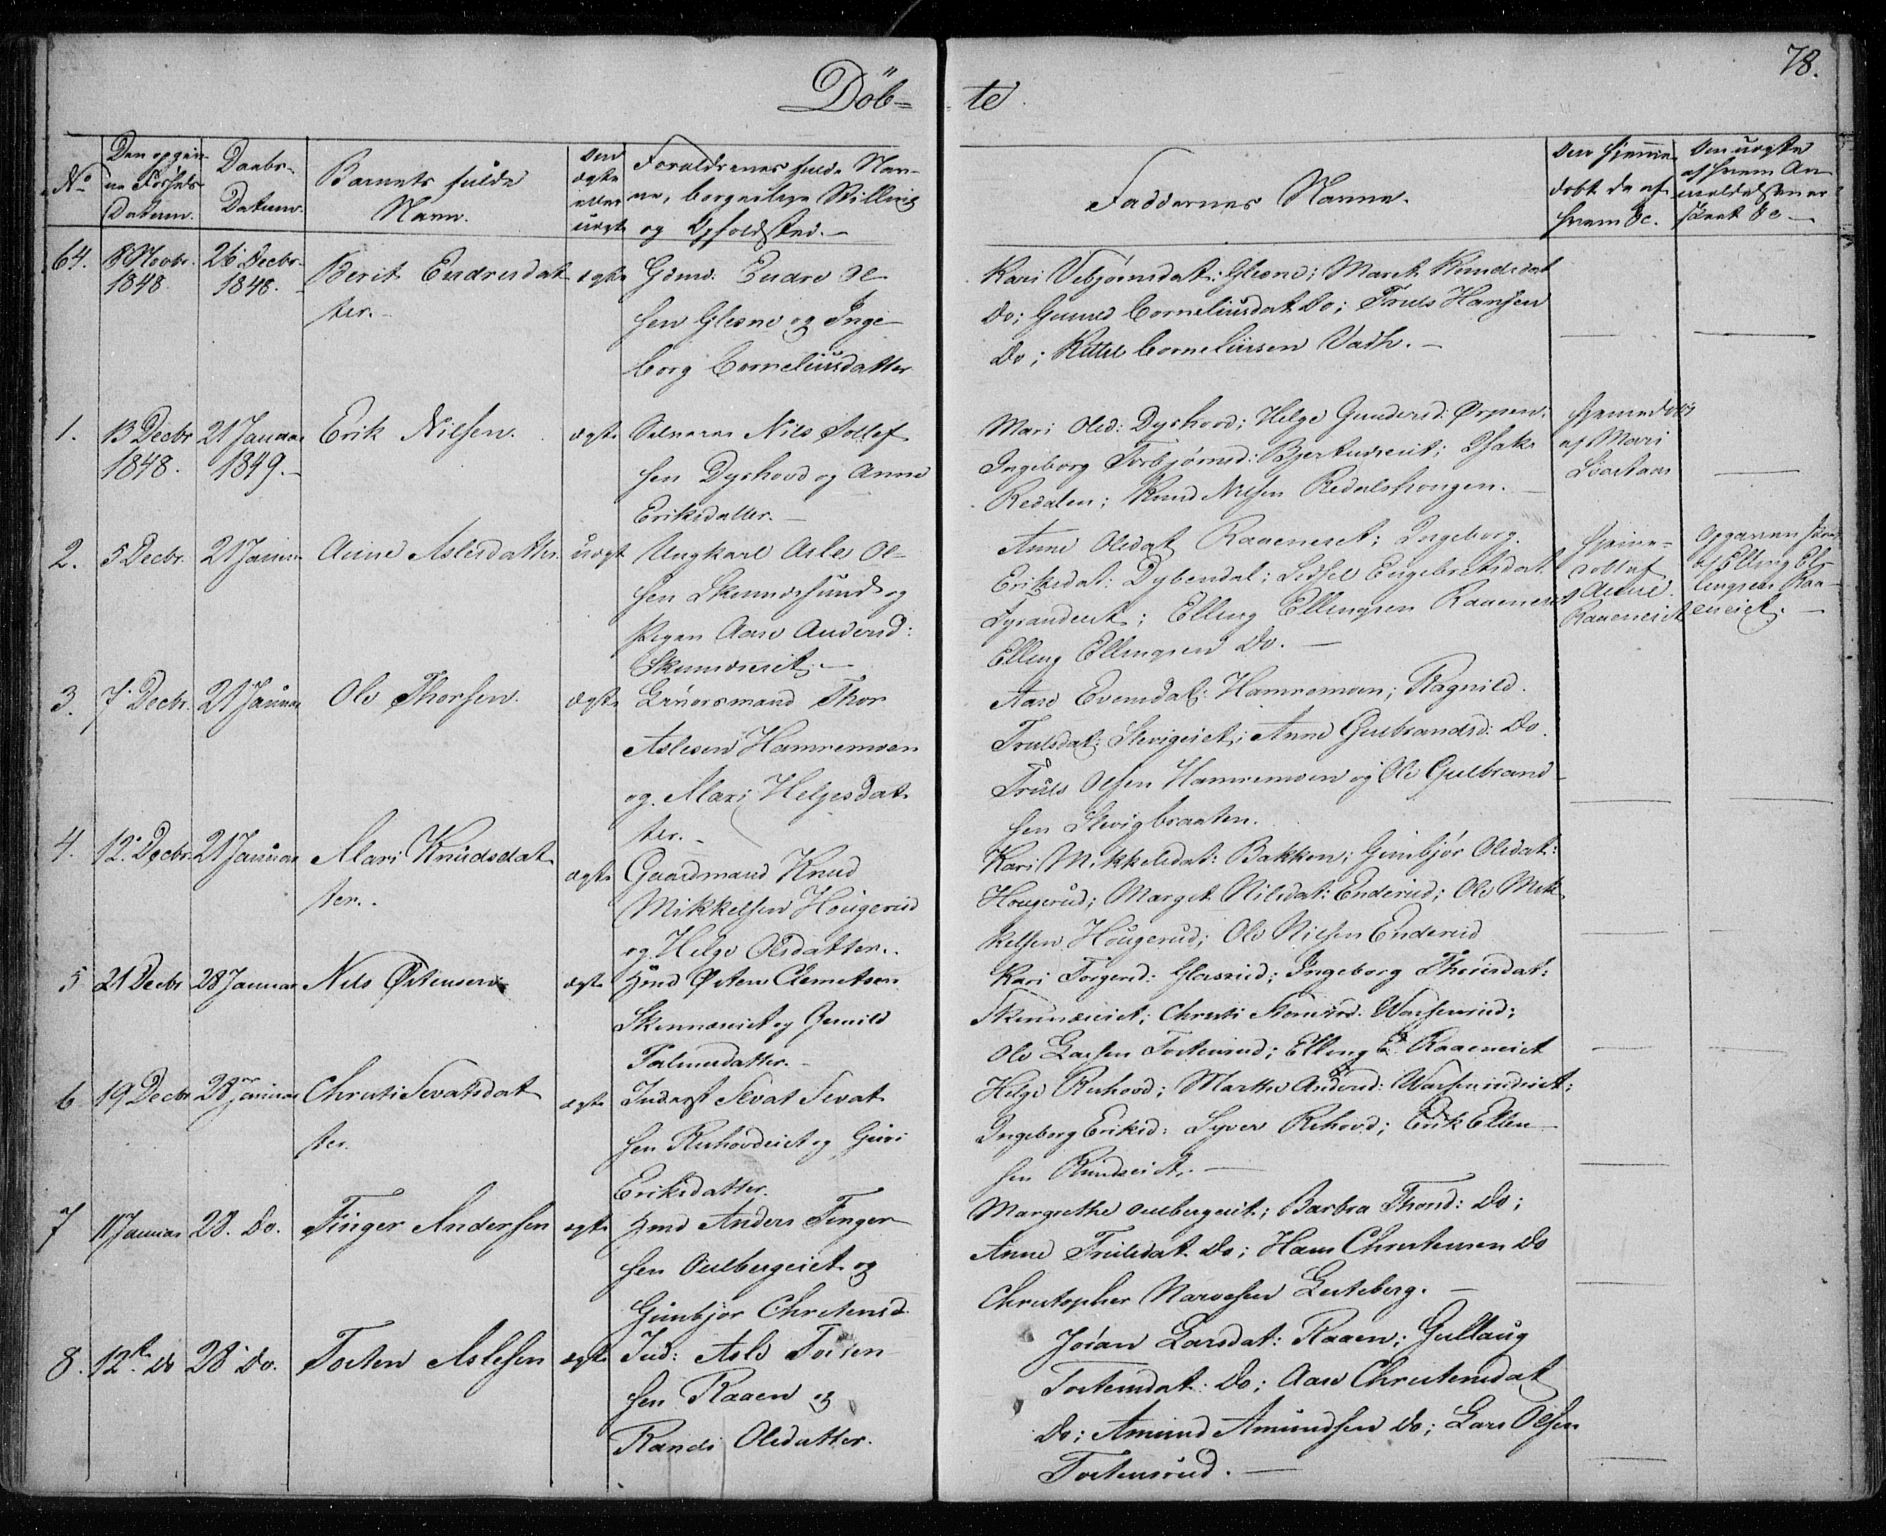 78.
Döb= te
No
Den opgivne Fødsels Datum.
Daabs-Datum.
Barnets fulde Navn.
Den ægte eller uægte
Forældrenes fulde Navne, borgerlige Stilling og Opholdsted.
Faddernes Navne.
Den hjemmedøbt da af hvem &c.
Den uægte af hvem Anmeldelsen er skeet &c
64. 8 Novbr. 1848
26 Decbr. 1848.
Berit Endresdat
ter.
ægte
Gdmd. Endre Ol
sen Glesne og Inge
borg Corneliusdatter
Kari Vebjørnsdat: Glesne; Maret Knudsdat
Do; Gunild Corneliusdat Do; Truls Hansen
Do; Kittel Corneliusen Vadh.
1. 13 Decbr 1848.
21 Januar 1849.
Erik Nilsen.
ægte
Nils Tollef
sen Dyshovd og Anne
Eriksdatter.
Mari Olsd: Dyshovd; Helge Gundersd: Ørpen.
Ingeborg Torbjørnsd:
Redalen; Knud Nilsen
hjemmedøbt
af Mari
2. 5 Decbr. 21 Januar
Anne Aslesdatter.
uægt
Ungkarl Asle Ol-
sen og
Pigen Aase Andersd:
Anne Olsdat Raaeneiet; Ingeborg
Eriksdat: Dybendal; Sidsel Engebretsdat
Elling Ellingsen Raaeneiet
Elling Ellingsen Do.
hjemme-
døbt af
Anne
Raaeneiet
Opgaven skeet
af Elling El-
lingsen Raa-
eneiet.
3. 7. Decbr. 21 Januar
Ole Thorsen.
ægte
Thor
Aslesen Hamremoen
og Mari Helgesdat
ter.
Aase Evensdat: Hamremoen; Ragnild
Trulsdat: Anne Gulbrandsd: Do.
Truls Olsen Hamremoen og Ole Gulbrand
sen
4. 12. Decbr. 21 Januar
Mari Knudsdat
ter.
ægte
Gaardmand Knud
Mikkelsen Hougerud
og Helge Olsdatter.
Kari Mikkelsdat: Bakken; Gunbjør Olsdat:
Hougerud; Marget Nilsdat: Enderud; Ole Mik
kelsen Hougerud; Ole Nilsen Enderud
5 21 Decbr 28 Januar
Nils Østensen
ægte
Hmd Østen Clemetsen
og Gunild
Kari Torgersd: Glasrud; Ingeborg Thorisdat:
Christi
Ole Larsen Tostensrud; Elling E. Raaeneiet
6 19 Decbr 28 Januar
Christi Sevatsdat
ter.
ægte
Inderst Sevat Sevat
sen Ruhovdeiet og Guri
Eriksdatter.
Helge Ruhovd; Marthe Andersd:
Ingeborg Eriksd: Syver Rehovd; Erik Ellen
sen
7 11 Januar 28. Do.
Finger Andersen
ægte
Hmd Anders Finger
sen Oulbergeiet og
Gunbjør Christensd.
Margrethe Oulbergeiet; Barbra Thorsd: Do;
Anne Trulsdat Do; Hans Christensen Do
Christopher Narvesen Gulsberg.
8. 12te Do 28 Do.
Tosten Aslesen
ægte
Ind: Asle Tosten
sen Raaen og
Randi Olsdatter.
Joran Larsdat: Raaen; Gullaug
Tostensdat: Do; Aase Christensdat
Do; Amund Amundsen Do; Lars Olsen
Tostensrud.